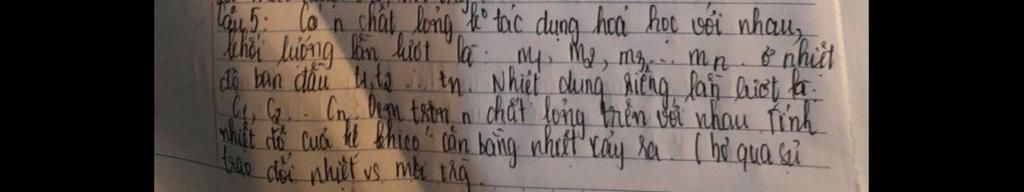 Câu 5: Có n chất lỏng k° tác dụng hoá học với nhau,
khối lượng lần lượt là: m1, m2, m3,... mn. ở nhiệt
độ ban đầu t1, t2 ... tn. Nhiệt dung riêng lần lượt là:
C1, C2 ... Cn. Đem trộn n chất lỏng trên với nhau. Tính
nhiệt độ của hệ khi có cân bằng nhiệt xảy ra. (bỏ qua sự
trao đổi nhiệt vs